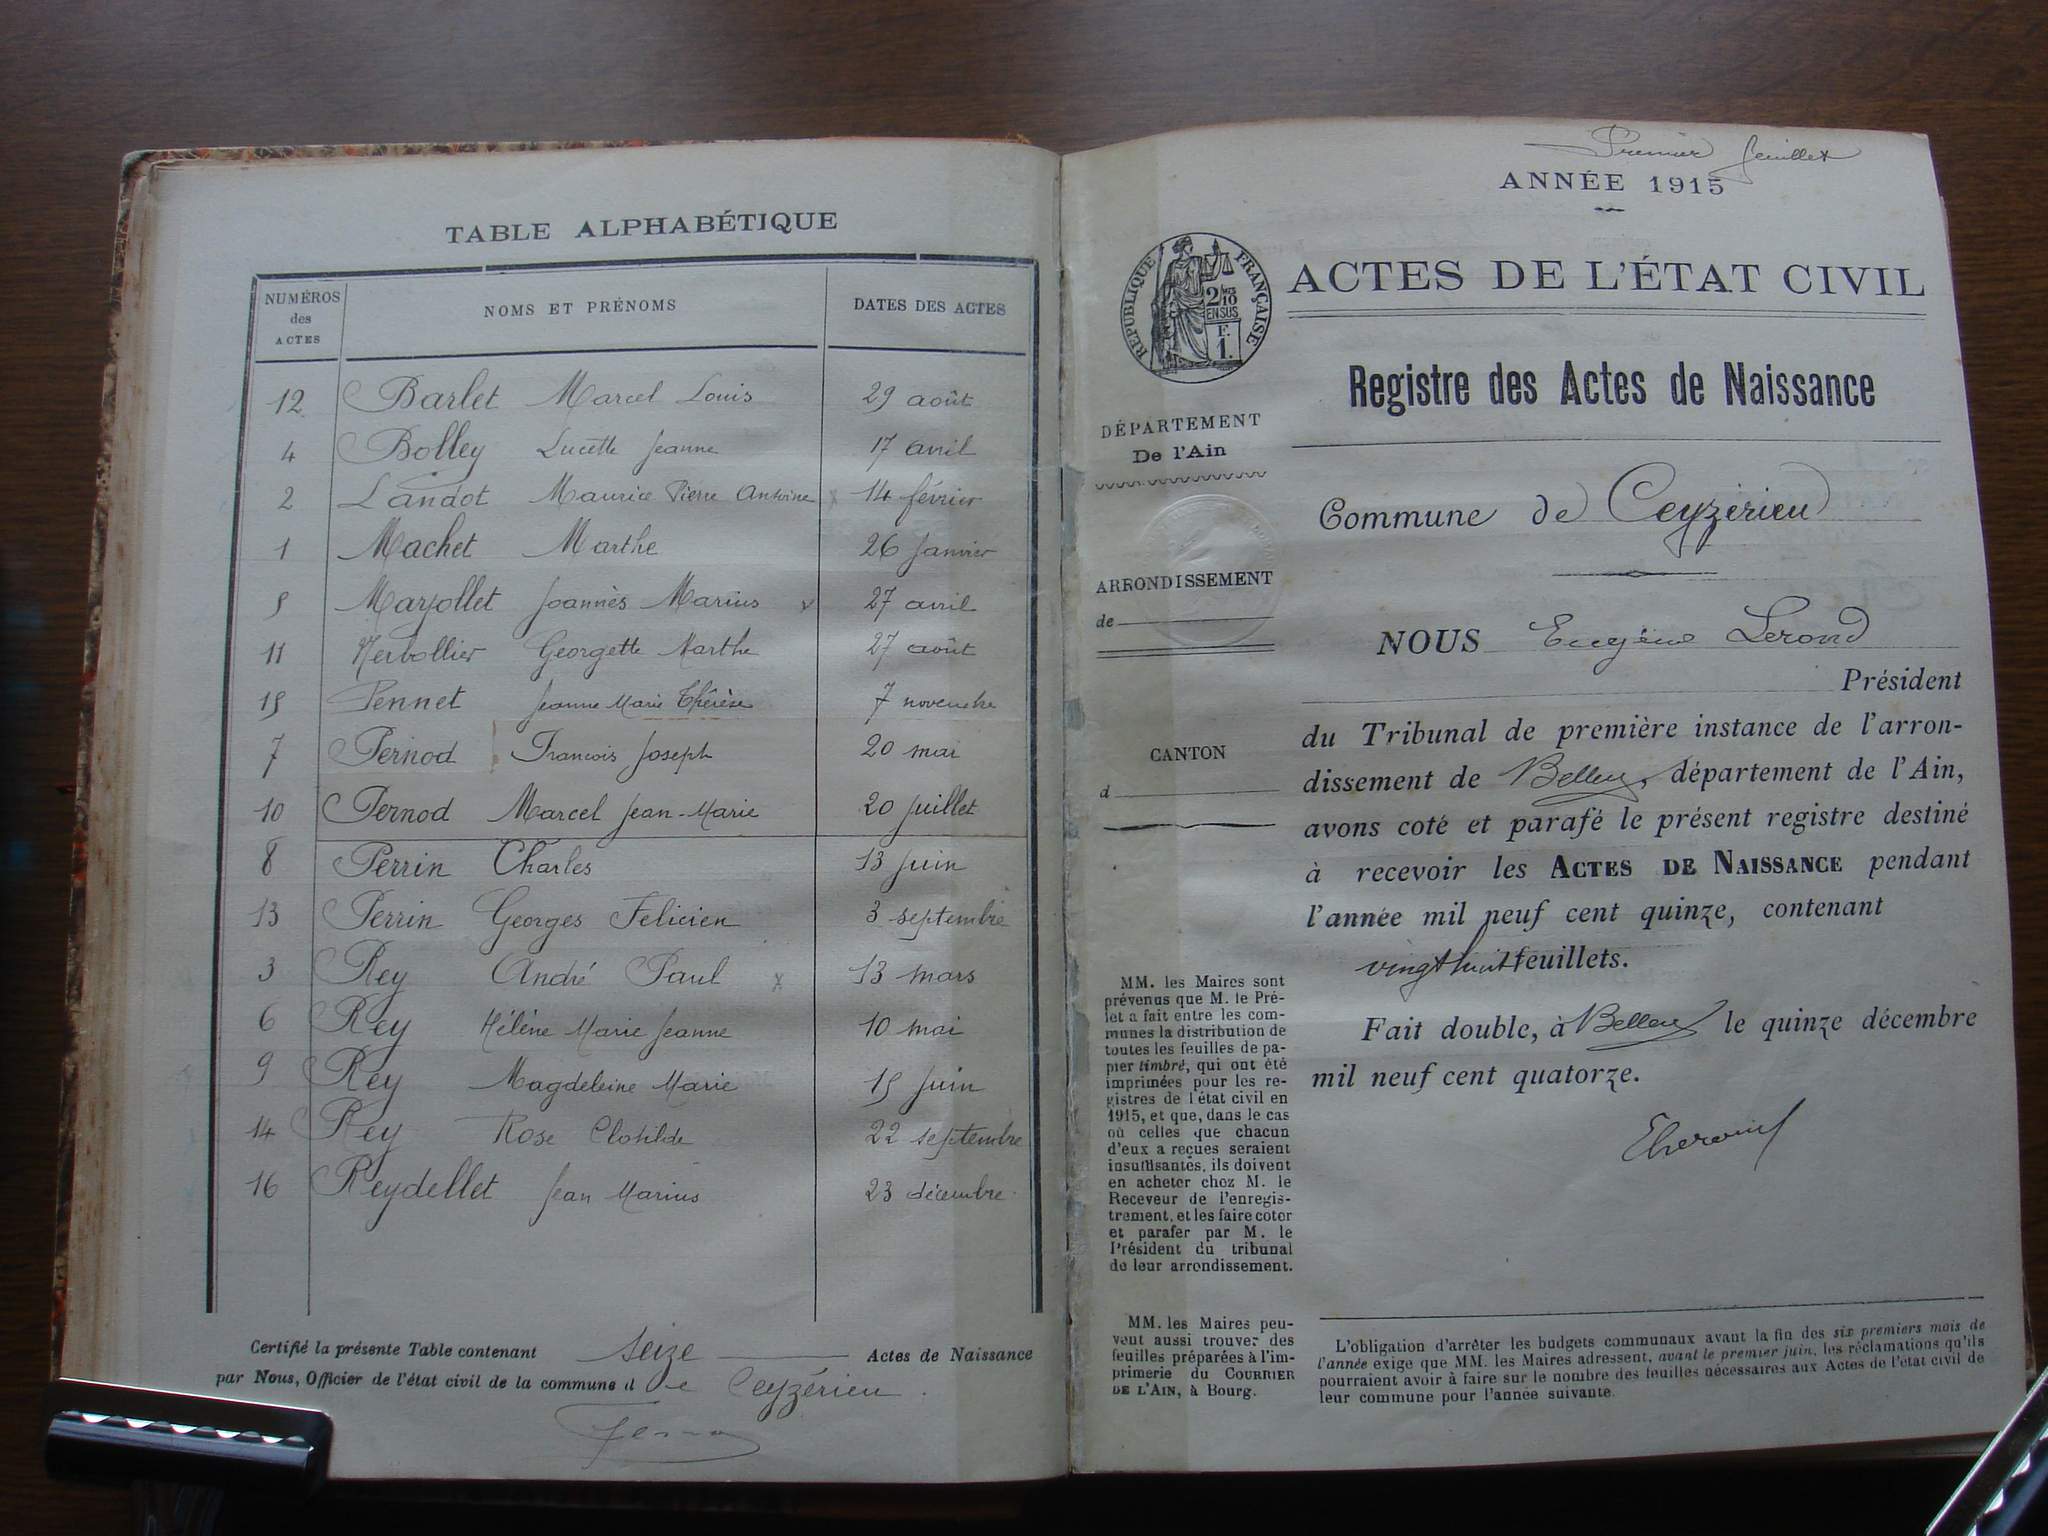 TABLE ALPHABÉTIQUE
NUMÉROS des ACTES NOMS ET PRÉNOMS DATES DES ACTES
12 Barlet Marcel Louis 29 août
4 Bolley Lucette Jeanne 17 avril
2 Landot Maurice Pierre Antoine x 14 février
1 Machet Marthe 26 Janvier
5 Marjollet Joannès Marius x 27 avril
11 Merbollier Georgette Marthe 27 août
15 Pennet Jeanne Marie Thérèse 7 novembre
7 Pernod Francois Joseph 20 mai
10 Pernod Marcel Jean-Marie 20 Juillet
8 Perrin Charles 13 Juin
13 Perrin Georges Felicien 3 septembre
3 Rey André Paul x 13 mars
6 Rey Hélène Marie Jeanne 10 mai
9 Rey Magdeleine Marie 15 Juin
14 Rey Rose Clotilde 22 septembre
16 Reydellet Jean Marius 23 décembre.
Certifié la présente Table contenant seize Actes de Naissance
par Nous, Officier de l'état civil de la commune de Ceyzérieu.
Premier feuillet
ANNÉE 1915
RÉPUBLIQUE FRANÇAISE
2/10
EN SUS
F.
1.
ACTES DE L'ÉTAT CIVIL
Registre des Actes de Naissance
DÉPARTEMENT
De l'Ain
Commune de Ceyzérieu
ARRONDISSEMENT
de
CANTON
d
NOUS Eugène Lerond
Président
du Tribunal de première instance de l'arron-
dissement de Belley, département de l'Ain,
avons coté et parafé le présent registre destiné
à recevoir les ACTES DE NAISSANCE pendant
l'année mil neuf cent quinze, contenant
vingt huit feuillets.
Fait double, à Belley le quinze décembre
mil neuf cent quatorze.
MM. les Maires sont
prévenus que M. le Pré-
let a fait entre les com-
munes la distribution de
toutes les feuilles de pa-
pier timbré, qui ont été
imprimées pour les re-
gistres de l'état civil en
1915, et que, dans le cas
où celles que chacun
d'eux a reçues seraient
insuffisantes, ils doivent
en acheter chez M. le
Receveur de l'enregis-
trement, et les faire coter
et parafer par M. le
Président du tribunal
de leur arrondissement.
MM. les Maires peu-
vent aussi trouver des
feuilles préparées à l'im-
primerie du COURRIER
DE L'AIN, à Bourg.
L'obligation d'arrêter les budgets communaux avant la fin des six premiers mois de
l'année exige que MM. les Maires adressent, avant le premier juin, les réclamations qu'ils
pourraient avoir à faire sur le nombre des feuilles nécessaires aux Actes de l'état civil de
leur commune pour l'année suivante.